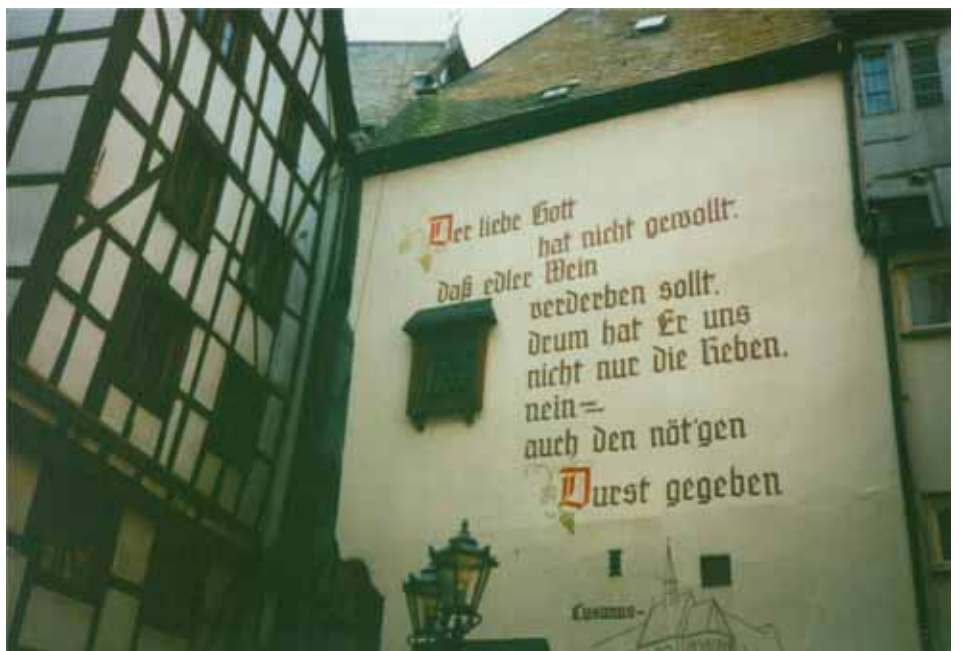 Der liebe Gott
hat nicht gewollt.
daß edler Wein
verderben sollt.
drum hat Er uns
nicht nur die Reben.
nein=
auch den nöt'gen
Durst gegeben
Cusanus-